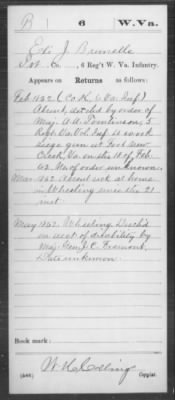 B | 6 | W.Va.
J. Brunelle
Pvt. Co. , 6 Reg't W. Va. Infantry.
Appears on Returns as follows:
Feb. 1862 (Co. K, 6 Va. Inf)
Absent, detailed by order of
Maj. A. A. Tomlinson, 5
Regt. Va. Vol. Inf. to work
seige gun at Fort New
Creek Va. on the 11 of Feb
62. No. of order unknown.
Mar. 1862 Absent sick at home
in Wheeling since the 21
inst
May 1862. Wheeling. Disch'd
on acct of disability by
Maj. Gen. J. C. Fremont.
Date unknown.
Book mark:
W. H.
(546) Copyist.